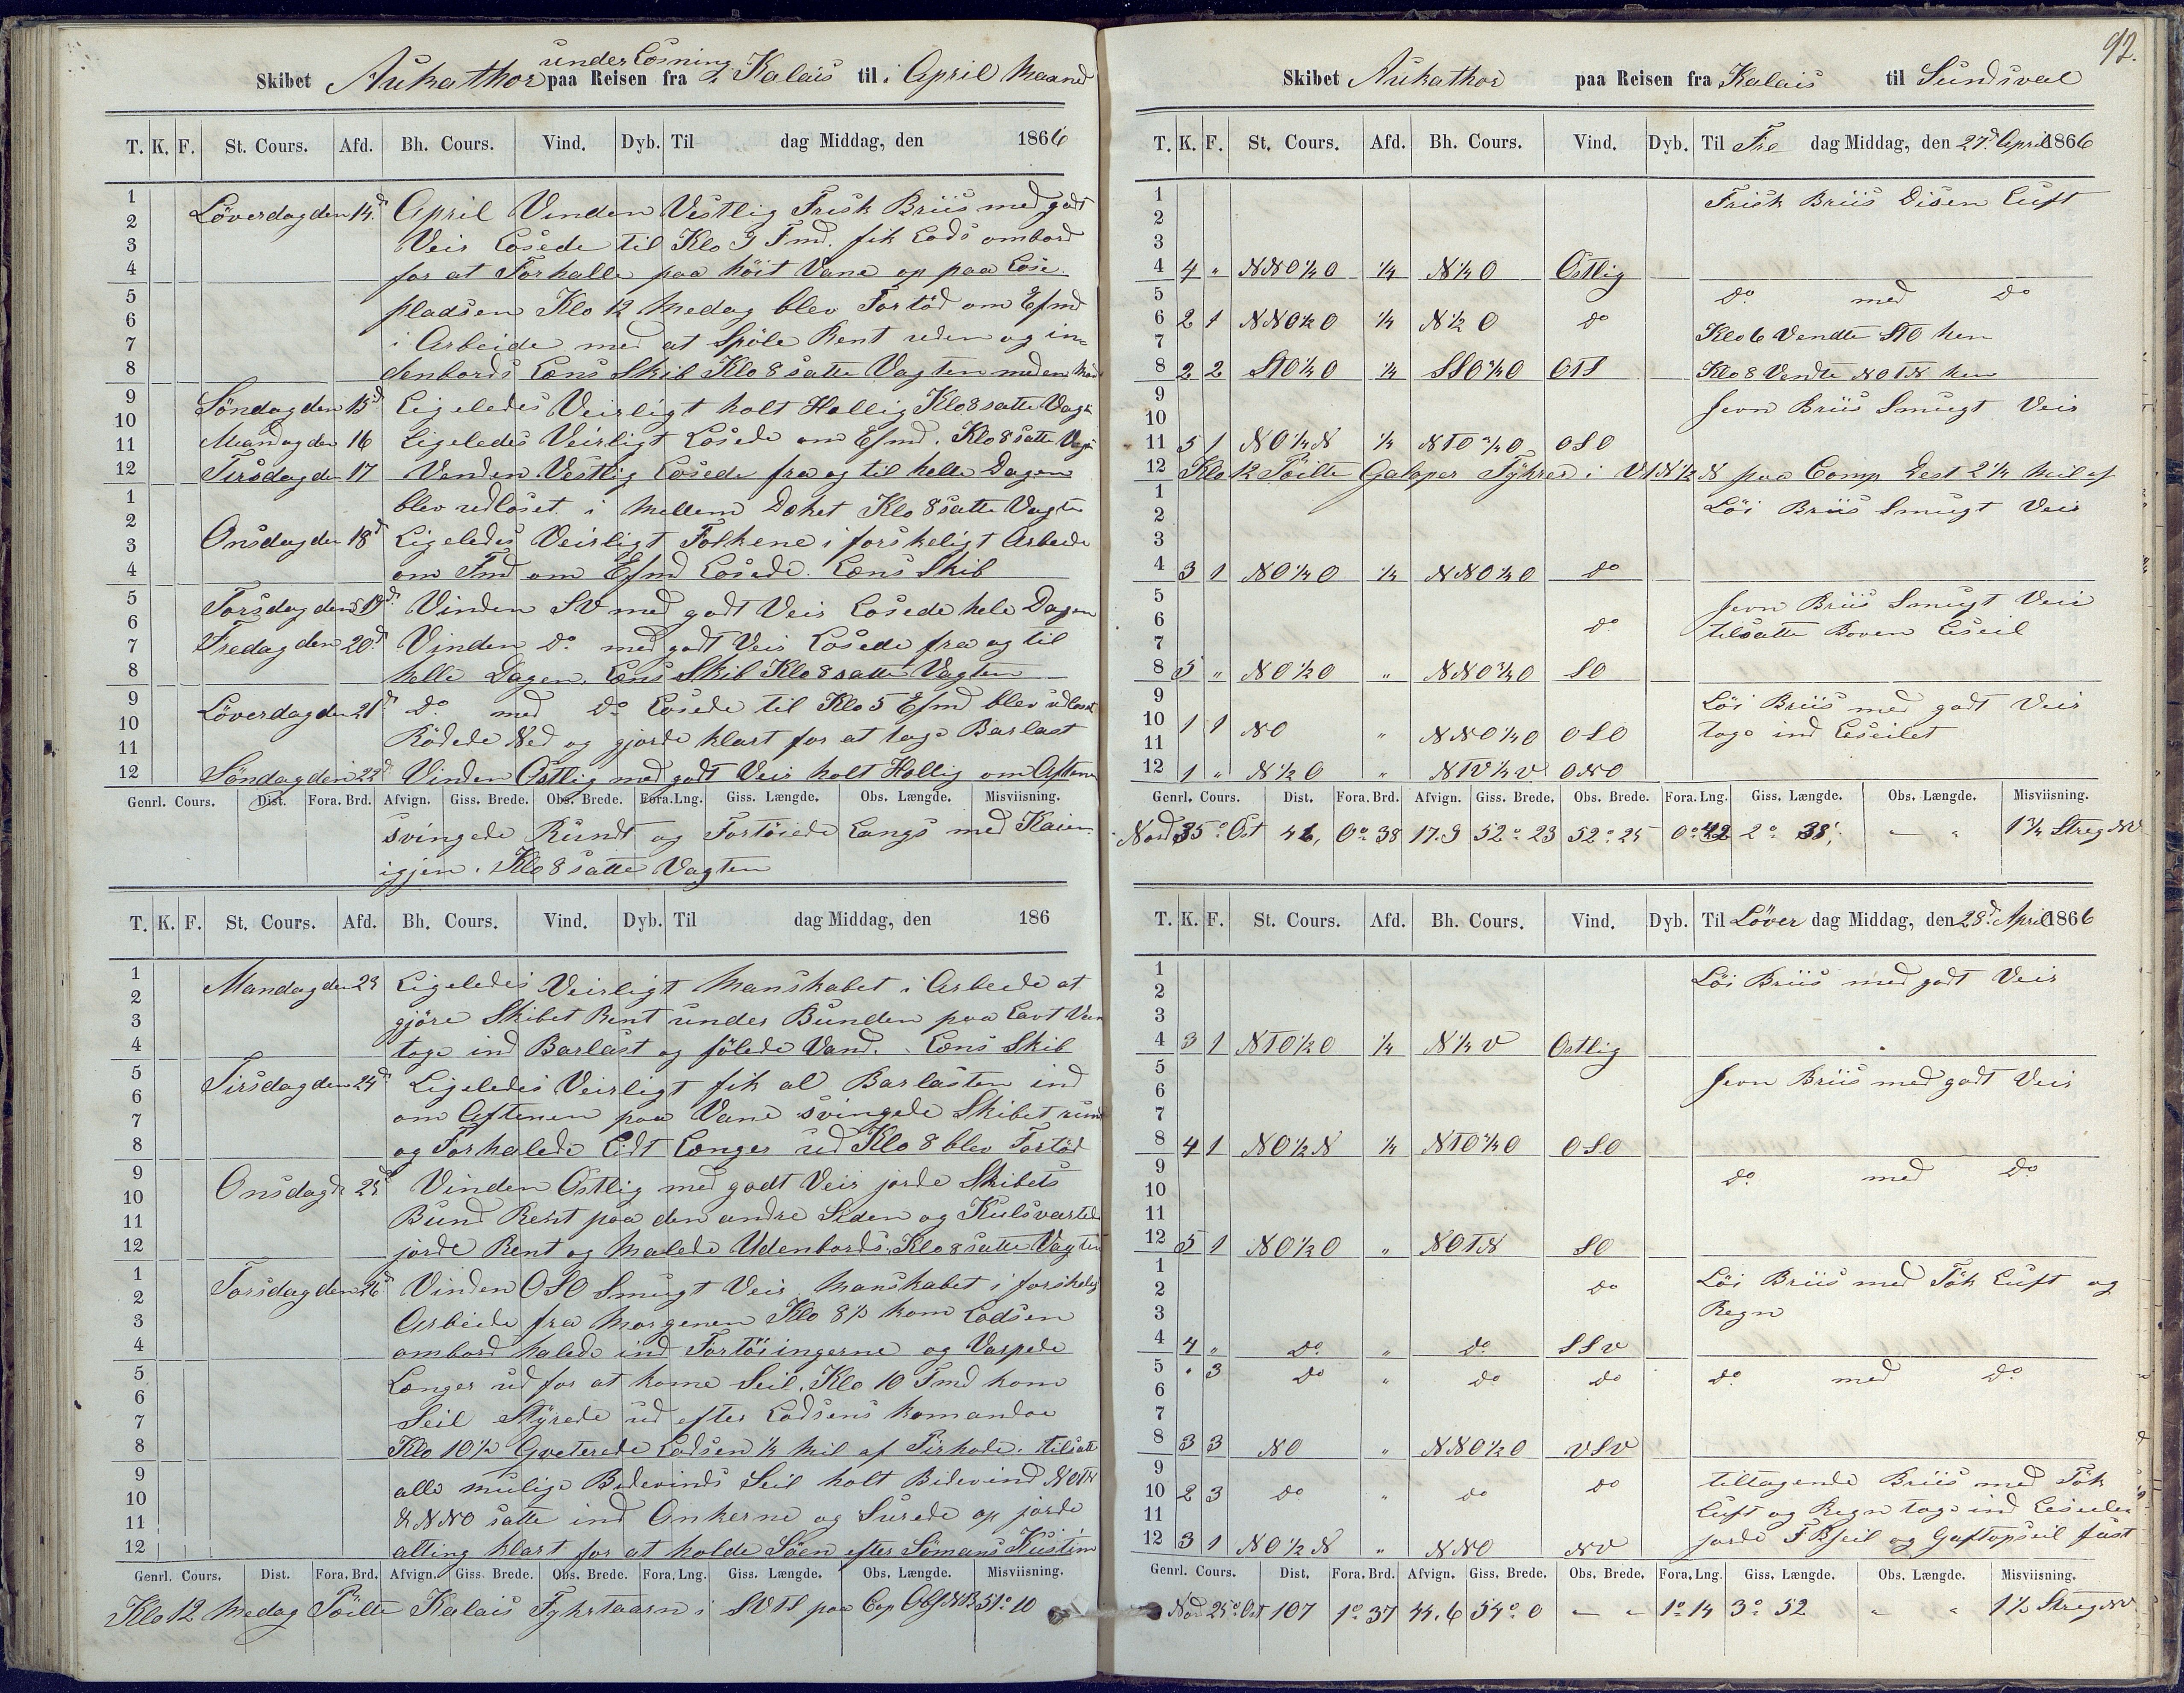 under Losning
Skibet Aukathor paa Reisen fra i Kalais til i April Maaned
T. K. F. St. Cours. Afd. Bh. Cours. Vind. Dyb. Til dag Middag, den 1866
1 Löverdag den 14d April Vinden Vestlig Frisk Briis med godt
2
3 Veir Losede til Klo 9 Fmd. fik Lods ombord
4 for at Forhalle paa höit Vane op paa Lose
5 pladsen Klo 12 Medag blev Fortöd om Efmd
6
7 i Arbeide med at Spöle Rent uden og in=
8 denbords Lens Skib Klo 8 satte Vagten med en Mand
9 Söndag den 15d Ligeledes Veirligt holt Hellig Klo 8 satte Vagt
10
11 Mandag den 16 Ligeledes Veirligt Losede om Efmd. Klo 8 satte Vagt
12 Tirsdag den 17 Venden Vestlig Losede fra og til helle Dagen
1 blev udloset i Mellem Deket Klo 8 satte Vagten
2
3 Onsdag den 18d Ligeledes Veirligt Folkene i forskeligt Arbeide
4 om Fmd om Efmd Losede. Lens Skib
5 Torsdag den 19d Vinden SV med godt Veir Losede hele Dagen
6
7 Fredag den 20d Vinden do med godt Veir Losede fra og til
8 helle Dagen. Lens Skib Klo 8 satte Vagten
9 Löverdag den 21d do med do Losede til Klo 5 Efmd blev udloset
10
11 Rödede Ned og gjorde klart for at tage Barlast
12 Söndag den 22d Vinden Ostlig med godt Veir holt Hellig om Aftenen
Genrl. Cours. Dist. Fora. Brd. Afvign. Giss. Brede. Obs. Brede. Fora. Lng. Giss. Længde. Obs. Længde. Misviisning.
svingede Rundt og Fortöiede Langs med Kaien
igjen. Klo 8 satte Vagten
T. K. F. St. Cours. Afd. Bh. Cours. Vind. Dyb. Til dag Middag, den 186
1 Mandag den 23 Ligeledes Veirligt Manskabet i Arbeide at
2
3 gjöre Skibet Rent under Bunden paa Lavt Van
4 toge ind Barlast og fölede Vand. Lens Skib
5 Tirsdag den 24d Ligeledes Veirligt fik al Barlasten ind
6
7 om Aftenen paa Vane svingede Skibet rund
8 og Forhalede Lidt Længer ud Klo 8 blev Fortöd
9 Onsdag d. 25d Vinden Ostlig med godt Veir jorde Skibets
10
11 Bund Rent paa den andre Siden og Kulsvartede
12 jorde Rent og Malede Udenbords. Klo 8 satte Vagten
1 Torsdag den 26d Vinden OSO Smugt Veir Manskabet i forskelig
2
3 Arbeide fra Morgenen Klo 8½ kom Lodsen
4 ombord halede ind Fortöiingerne og Varpede
5 Længer ud for at kome Seil. Klo 10 Fmd kom
6
7 Seil Styrede ud efter Lodsens komandoe
8 Klo 10½ Qveterede Lodsen ¼ Mil af Pirhode. tilsatte
9 alle mulige Bidevinds Seil holt Bidevind NOTN
10 & NNO satte ind Ankerne og Surede op jorde
11
12 alting klart for at holde Söen efter Sömans Kustim
Genrl. Cours. Dist. Fora. Brd. Afvign. Giss. Brede. Obs. Brede. Fora. Lng. Giss. Længde. Obs. Længde. Misviisning.
Klo 12 Medag Peilte Kalais Fyhrtaarn i SVTS paa Cop Obf NB 51° 10
92.
Skibet Aukathor paa Reisen fra Kalais til Sundsval
T. K. F. St. Cours. Afd. Bh. Cours. Vind. Dyb. Til Fre dag Middag, den 27d April 1866
1 Frisk Briis Disen Luft
2
3
4 4 " NNO¼O ¼ N¼O Ostlig
5 do med do
6 2 1 NNO½O ¼ N½O do
7 Klo 6 Vendte STO hen
8 2 2 STO¼O ¼ SSO¼O OTS Klo 8 Vendte NOTN hen
9 Jevn Briis Smugt Veir
10
11 5 1 NO¼N ¼ NTO¾O OSO
12 Klo 12 Peilte Galoper Fyhret i VTN½N paa Comp Dest 2¼ Mil af
1 Löi Briis Smugt Veir
2
3
4 3 1 NO¼O ¼ NNO¼O do
5 Jevn Briis Smugt Veir
6 do tilsatte Boven Leseil
7
8 5 " NO½O " NNO¾O SO
9 Löi Briis med godt Veir
10 1 1 NO " NNO¼O OSO toge ind Leseilet
11
12 1 " N½O " NTV¼V ONO
Genrl. Cours. Dist. Fora. Brd. Afvign. Giss. Brede. Obs. Brede. Fora. Lng. Giss. Længde. Obs. Længde. Misviisning.
Nord 35° Ost 46, 0° 38 17.9 52° 23 52° 25 0° 42 2° 38' — " 1¾ Streg NV
T. K. F. St. Cours. Afd. Bh. Cours. Vind. Dyb. Til Löver dag Middag, den 28d April 1866
1 Löi Briis med godt Veir
2
3
4 3 1 NTO½O ¼ N¼V Ostlig
5 Jevn Briis med godt Veir
6
7
8 4 1 NO½N ¼ NTO¾O OSO
9 do med do
10
11
12 5 1 NO½O " NOTN SO
1 Löi Briis med Tök Luft og
2 do Regn
3
4 4 " do " do SSV
5 " 3 do " do do do med do
6
7
8 3 3 NO " NNO½O VSV
9 tiltagende Briis med Tök
10 2 3 do " do do Luft og Regn toge ind Leseilen
11
12 3 1 NO½N " NNO NV jorde FBseil og Gaftopseil fast
Genrl. Cours. Dist. Fora. Brd. Afvign. Giss. Brede. Obs. Brede. Fora. Lng. Giss. Længde. Obs. Længde. Misviisning.
Nord 25° Ost 107 1° 37 44.6 54° 0 — " 1° 14 3° 52 " " 1½ Streg NV